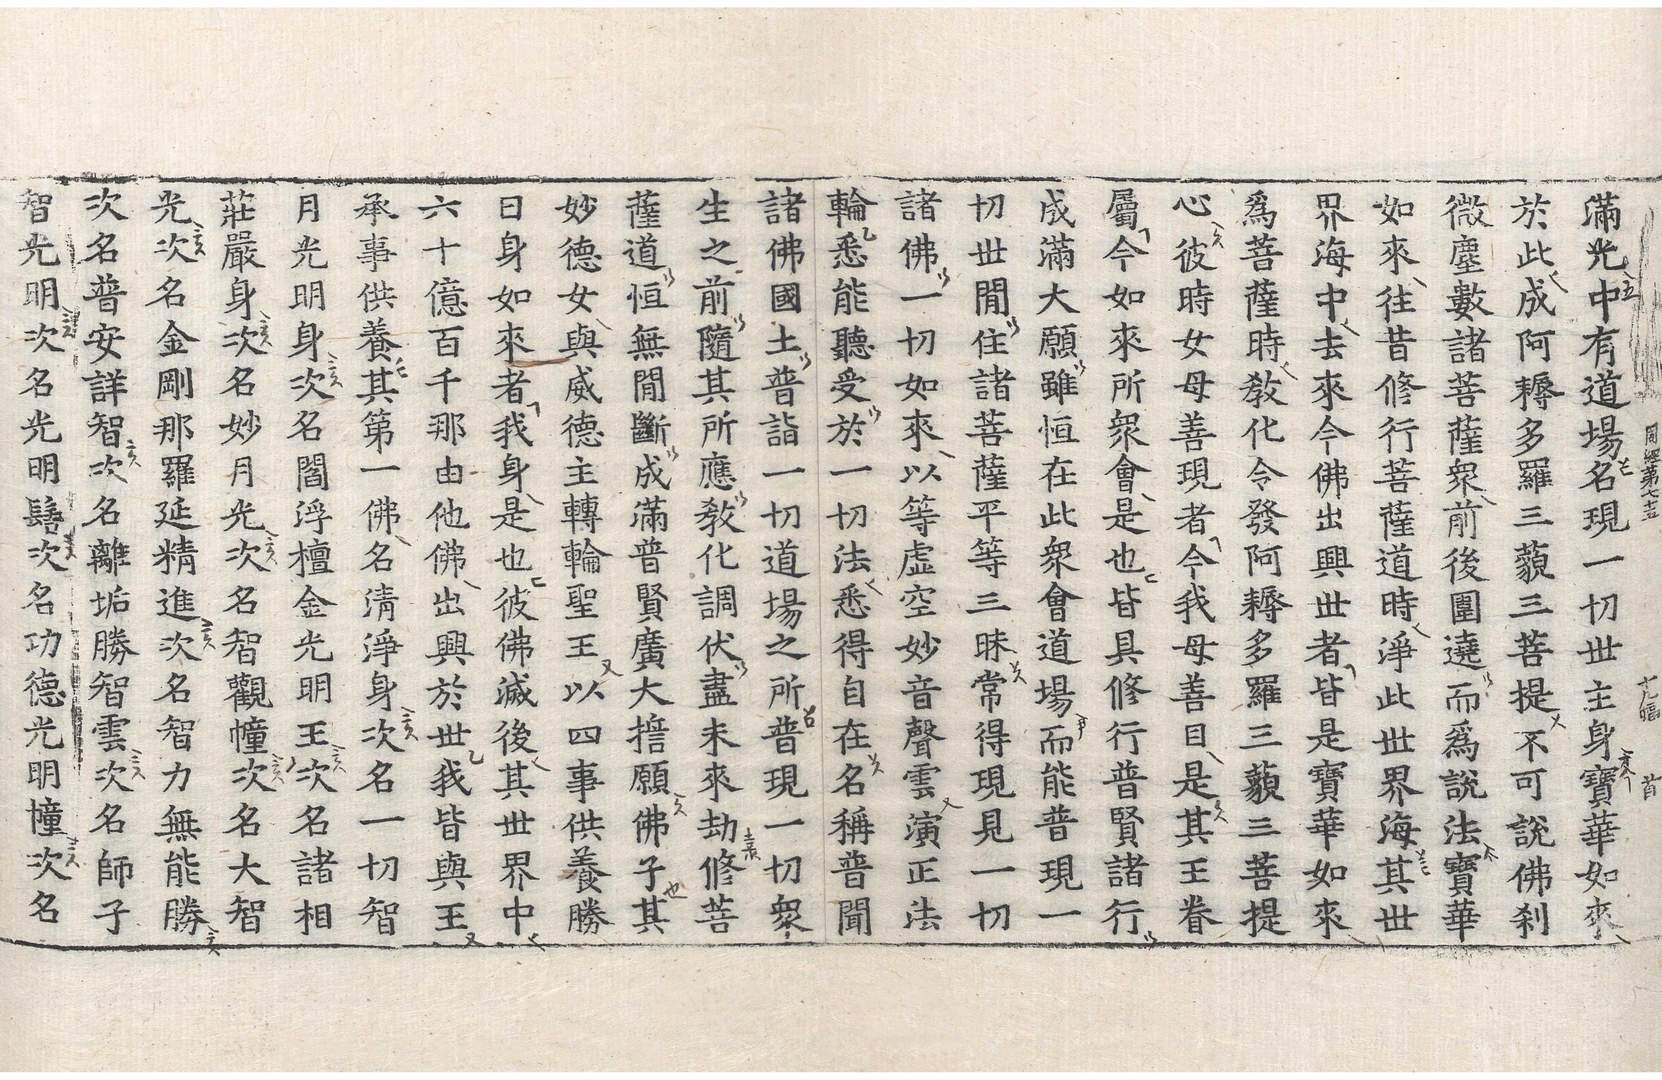 周經第七十五 十九幅 首
滿光中有道場名現一切世主身寶華如來
於此成阿耨多羅三藐三菩提不可說佛刹
微塵數諸菩薩衆前後圍遶而爲說法寶華
如來往昔修行菩薩道時淨此世界海其世
界海中去來今佛出興世者皆是寶華如來
爲菩薩時教化令發阿耨多羅三藐三菩提
心彼時女母善現者今我母善目是其王眷
屬今如來所衆會是也皆具修行普賢諸行
成滿大願雖恒在此衆會道場而能普現一
切世閒住諸菩薩平等三昧常得現見一切
諸佛一切如來以等虛空妙音聲雲演正法
輪悉能聽受於一切法悉得自在名稱普聞
諸佛國土普詣一切道場之所普現一切衆
生之前隨其所應教化調伏盡未來劫修菩
薩道恒無閒斷成滿普賢廣大誓願佛子其
妙德女與威德主轉輪聖王以四事供養勝
日身如來者我身是也彼佛滅後其世界中
六十億百千那由他佛出興於世我皆與王
承事供養其第一佛名清淨身次名一切智
月光明身次名閻浮檀金光明王次名諸相
莊嚴身次名妙月光次名智觀幢次名大智
光次名金剛那羅延精進次名智力無能勝
次名普安詳智次名離垢勝智雲次名師子
智光明次名光明髻次名功德光明幢次名